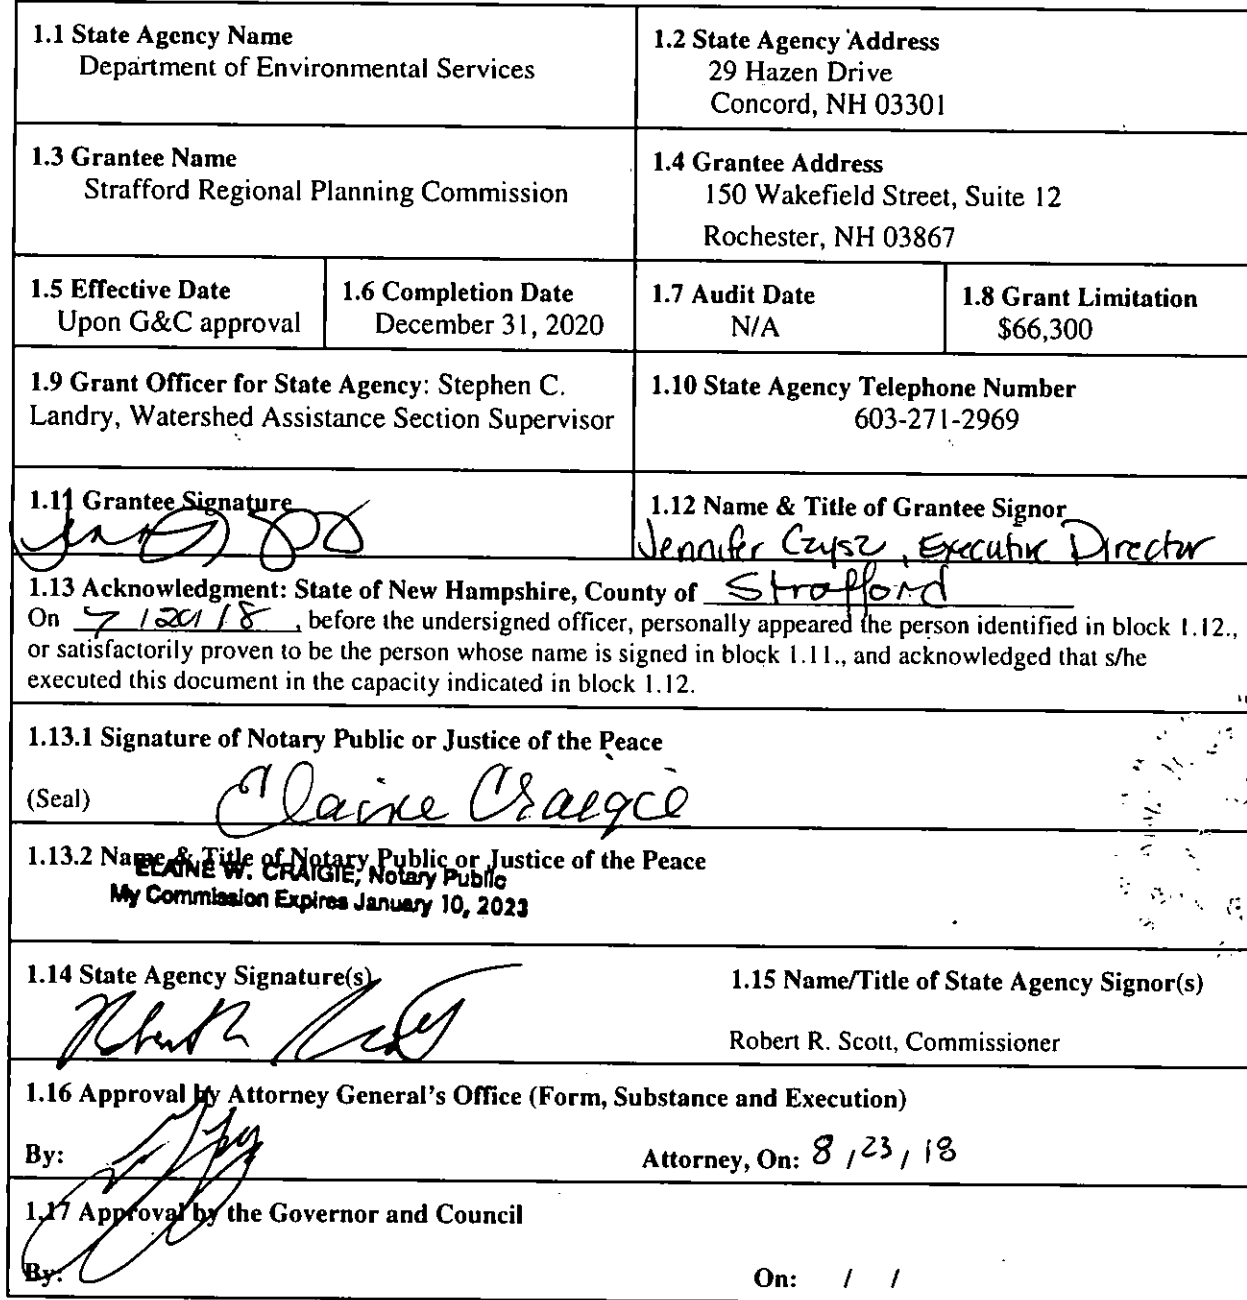 1.1 State Agency Name
Department of Environmental Services
1.2 State Agency Address
29 Hazen Drive
Concord, NH 03301
1.3 Grantee Name
Strafford Regional Planning Commission
1.4 Grantee Address
150 Wakefield Street, Suite 12
Rochester, NH 03867
1.5 Effective Date
Upon G&C approval
1.6 Completion Date
December 31, 2020
1.7 Audit Date
N/A
1.8 Grant Limitation
$66,300
1.9 Grant Officer for State Agency: Stephen C.
Landry, Watershed Assistance Section Supervisor
1.10 State Agency Telephone Number
603-271-2969
1.11 Grantee Signature
1.12 Name & Title of Grantee Signor
Jennifer Czysz, Executive Director
1.13 Acknowledgment: State of New Hampshire, County of Strafford
On , before the undersigned officer, personally appeared the person identified in block 1.12.,
or satisfactorily proven to be the person whose name is signed in block 1.11., and acknowledged that s/he
executed this document in the capacity indicated in block 1.12.
1.13.1 Signature of Notary Public or Justice of the Peace
(Seal)
Elaine Craigie
1.13.2 Name & Title of Notary Public or Justice of the Peace
ELAINE W. CRAIGIE, Notary Public
My Commission Expires January 10, 2023
1.14 State Agency Signature(s)
1.15 Name/Title of State Agency Signor(s)
Robert R. Scott, Commissioner
1.16 Approval by Attorney General's Office (Form, Substance and Execution)
By:
Attorney, On: 8 / 23 / 18
1.17 Approval by the Governor and Council
By:
On: / /